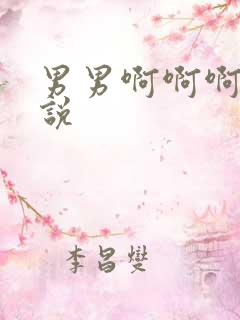 男男啊啊啊
説
李昌燮